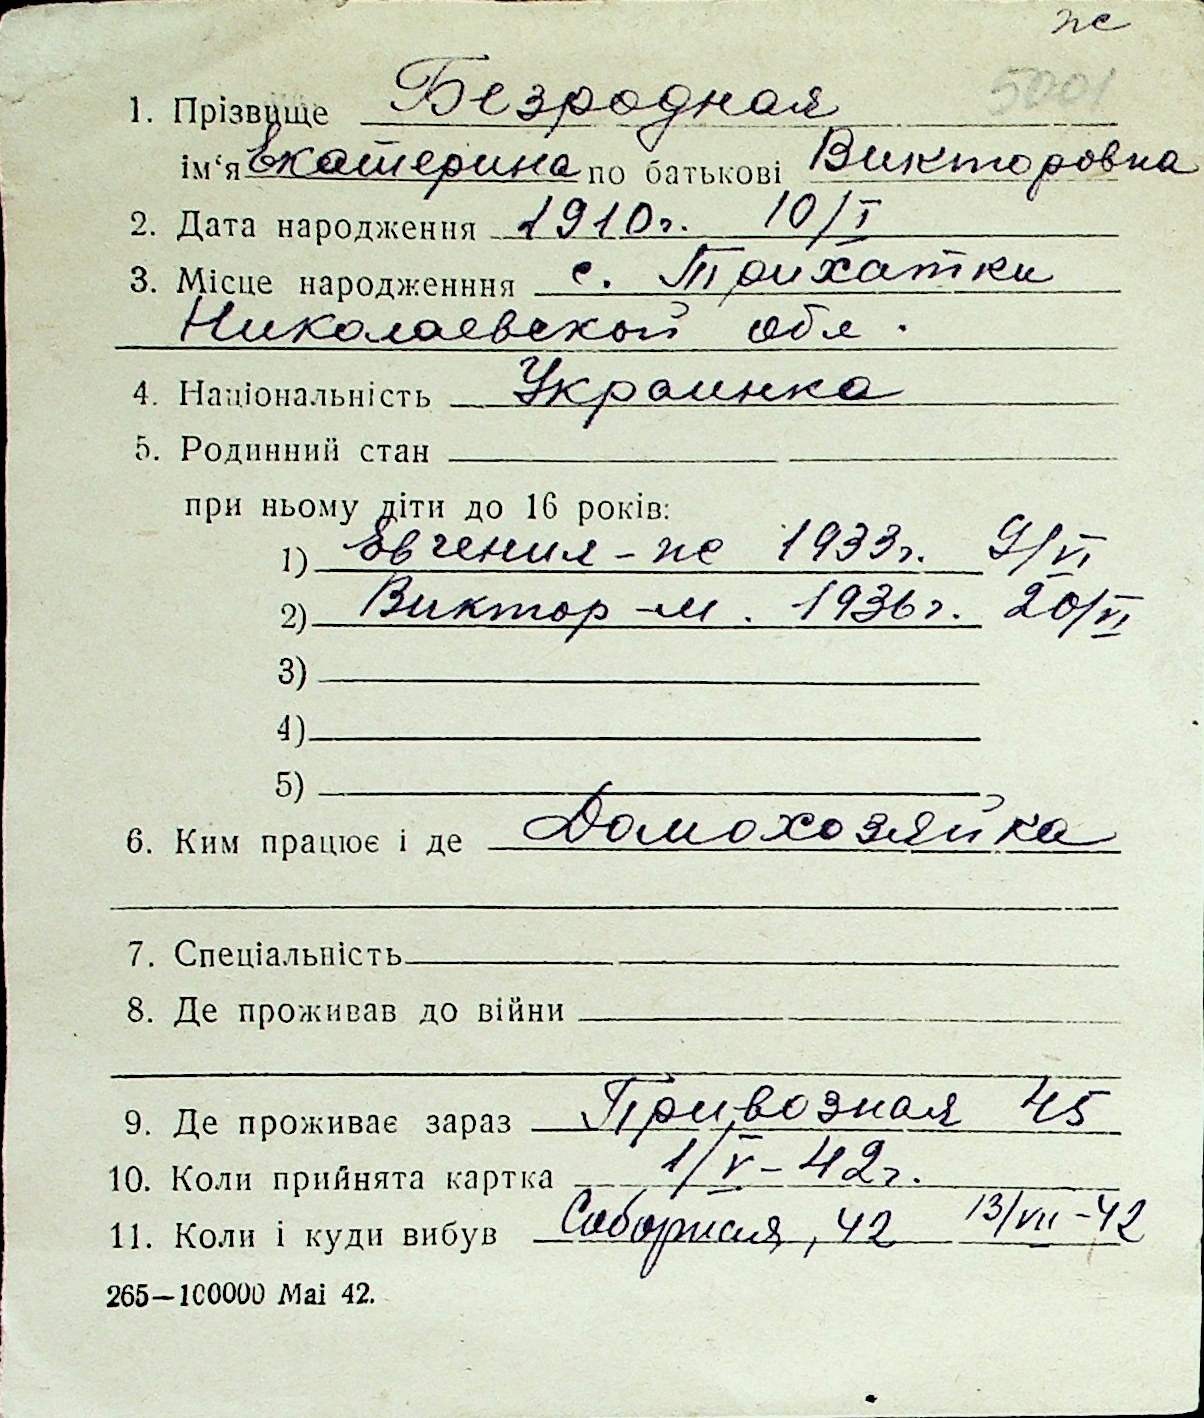 же
5001
1. Прізвище Безродная
ім‘я Екатерина по батькові Викторовна
2. Дата народження 1910г. 10/I
3. Місце народженння с. Трихатки
Николаевской обл.
4. Національність Украинка
5. Родинний стан
при ньому діти до 16 років:
1) Евгения - же 1933г. 9/VI
2) Виктор - м. 1936г. 20/VI
3)
4)
5)
6. Ким працює і де Домохозяйка
7. Спеціальність
8. Де проживав до війни
9. Де проживає зараз Привозная 45
10. Коли прийнята картка 1/V - 42г.
11. Коли і куди вибув Соборная, 42 13/VII - 42
265—100000 Маі 42.